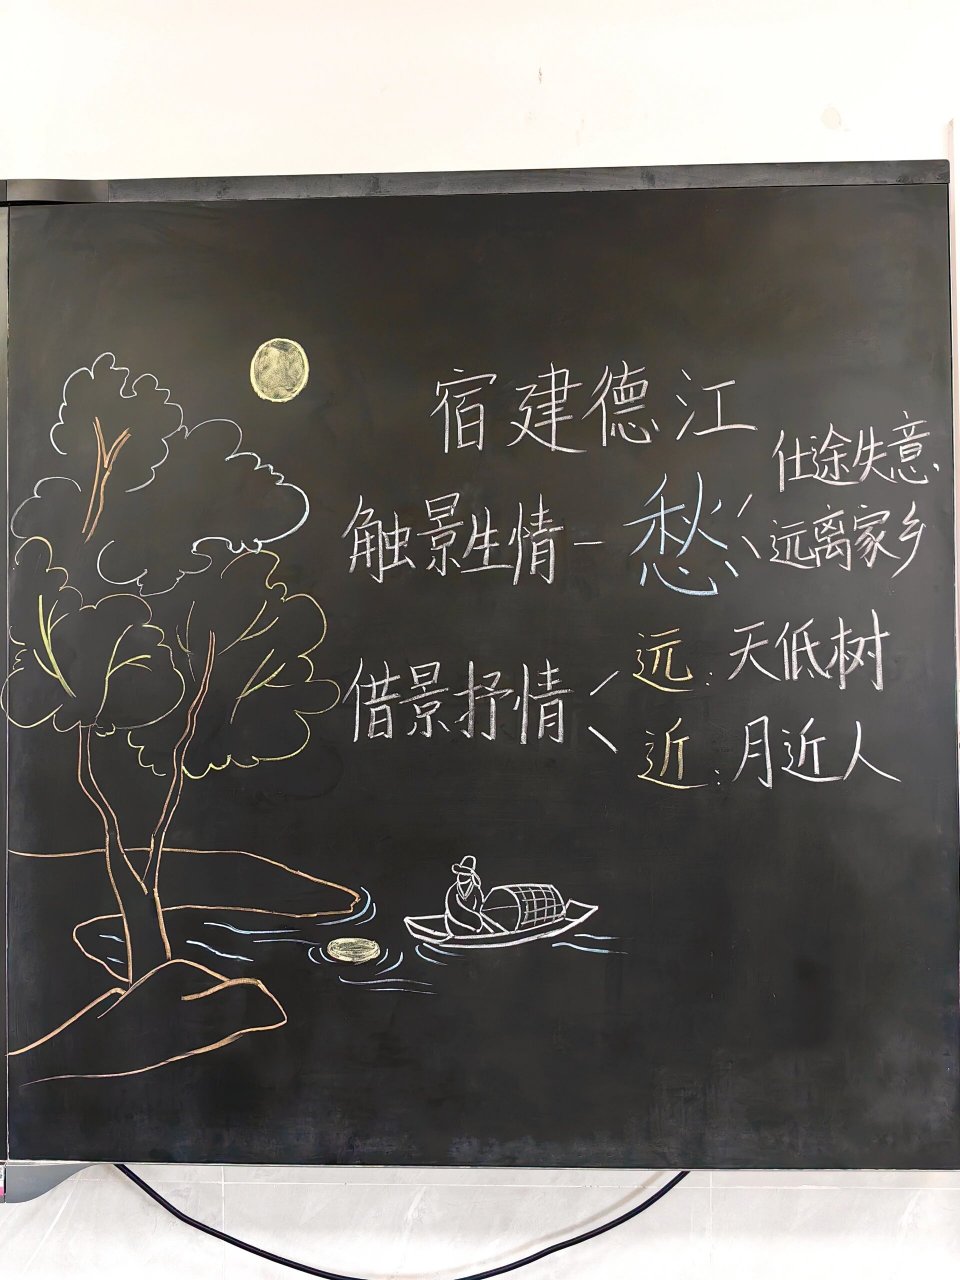 宿建德江
触景生情－愁
仕途失意
远离家乡
借景抒情
远：天低树
近：月近人